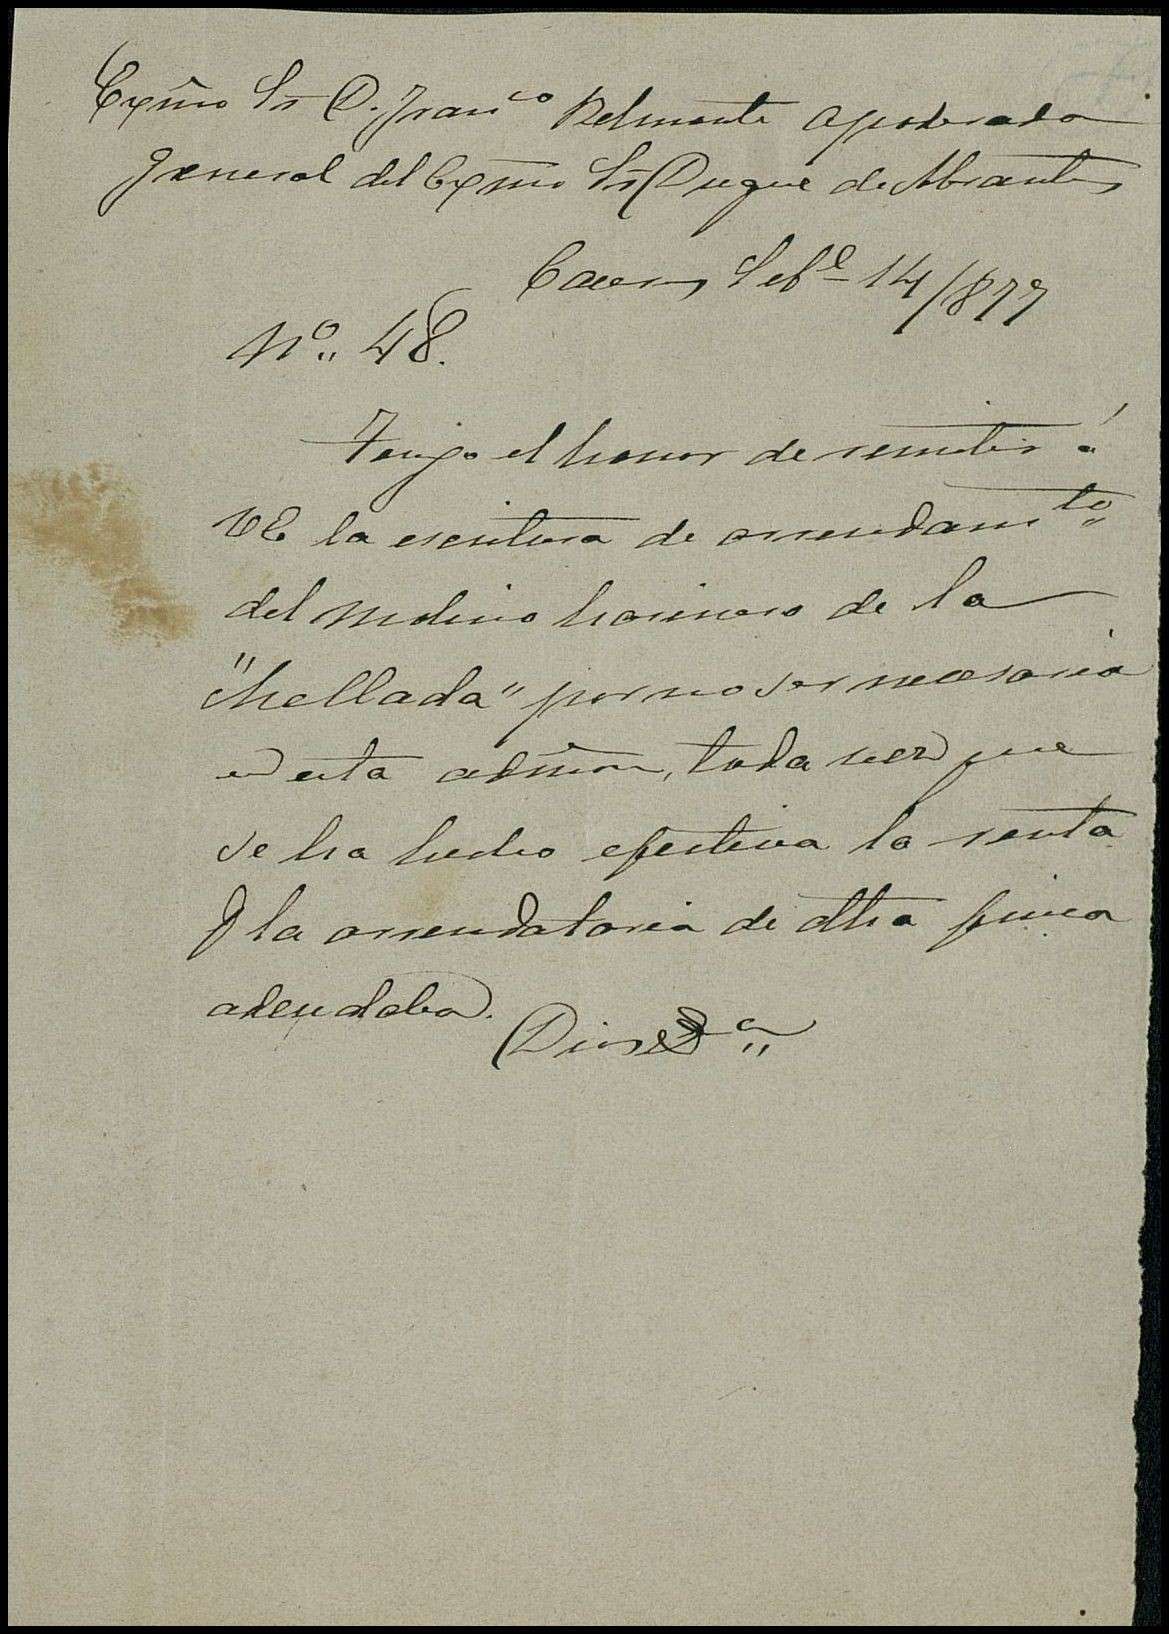 Exmo Sr D. Franco Belmonte Apoderado
General del Exmo Sr Duque de Abrantes
Caceres Sebe 14/877
No 48.
Tengo el honor de remitir á
VE la escritura de arrendamto
del Molino harinero de la
"Mellada" por no ser necesaria
en esta admon, toda vez que
se ha hecho efectiva la renta
q la arrendataria de dha finca
adeudaba.
Dios &a